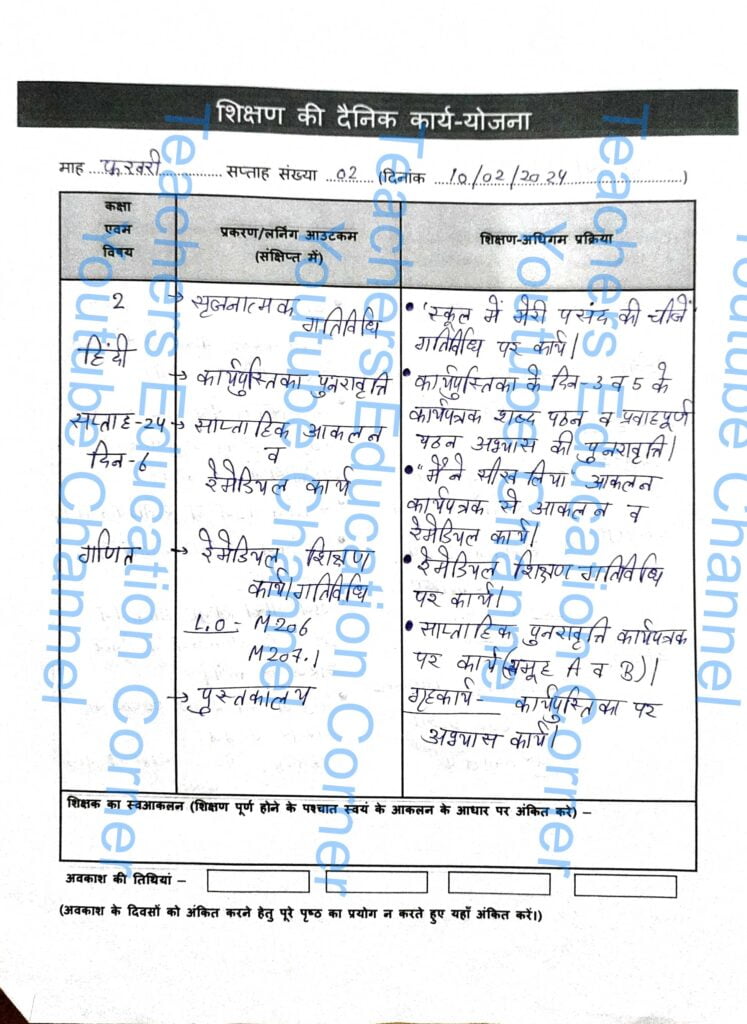 शिक्षण की दैनिक कार्य-योजना
माह ....फरवरी............... सप्ताह संख्या ..02... (दिनांक ...10/02/2024.....................)
कक्षा
एवम
विषय
प्रकरण/लर्निंग आउटकम
(संक्षिप्त में)
शिक्षण-अधिगम प्रक्रिया
2
हिंदी
सप्ताह-24
दिन-6
→ सृजनात्मक
गतिविधि
→ कार्यपुस्तिका पुनरावृत्ति
→ साप्ताहिक आकलन
व
रेमेडियल कार्य
• 'स्कूल में मेरी पसंद की चीजें'
गतिविधि पर कार्य।
• कार्यपुस्तिका के दिन-3 व 5 के
कार्यपत्रक शब्द पठन व प्रवाहपूर्ण
पठन अभ्यास की पुनरावृत्ति।
• "मैंने सीख लिया" आकलन
कार्यपत्रक से आकलन व
रेमेडियल कार्य।
गणित
→ रेमेडियल शिक्षण
कार्य/गतिविधि
L.O - M206
M207.1
→ पुस्तकालय
• रेमेडियल शिक्षण गतिविधि
पर कार्य।
• साप्ताहिक पुनरावृत्ति कार्यपत्रक
पर कार्य (समूह A व B)।
गृहकार्य- कार्यपुस्तिका पर
अभ्यास कार्य।
शिक्षक का स्वआकलन (शिक्षण पूर्ण होने के पश्चात स्वयं के आकलन के आधार पर अंकित करे) –
अवकाश की तिथियां –
(अवकाश के दिवसों को अंकित करने हेतु पूरे पृष्ठ का प्रयोग न करते हुए यहाँ अंकित करें।)
Teachers Education Corner
Youtube Channel
Teachers Education Corner
Youtube Channel
Teachers Education Corner
Youtube Channel